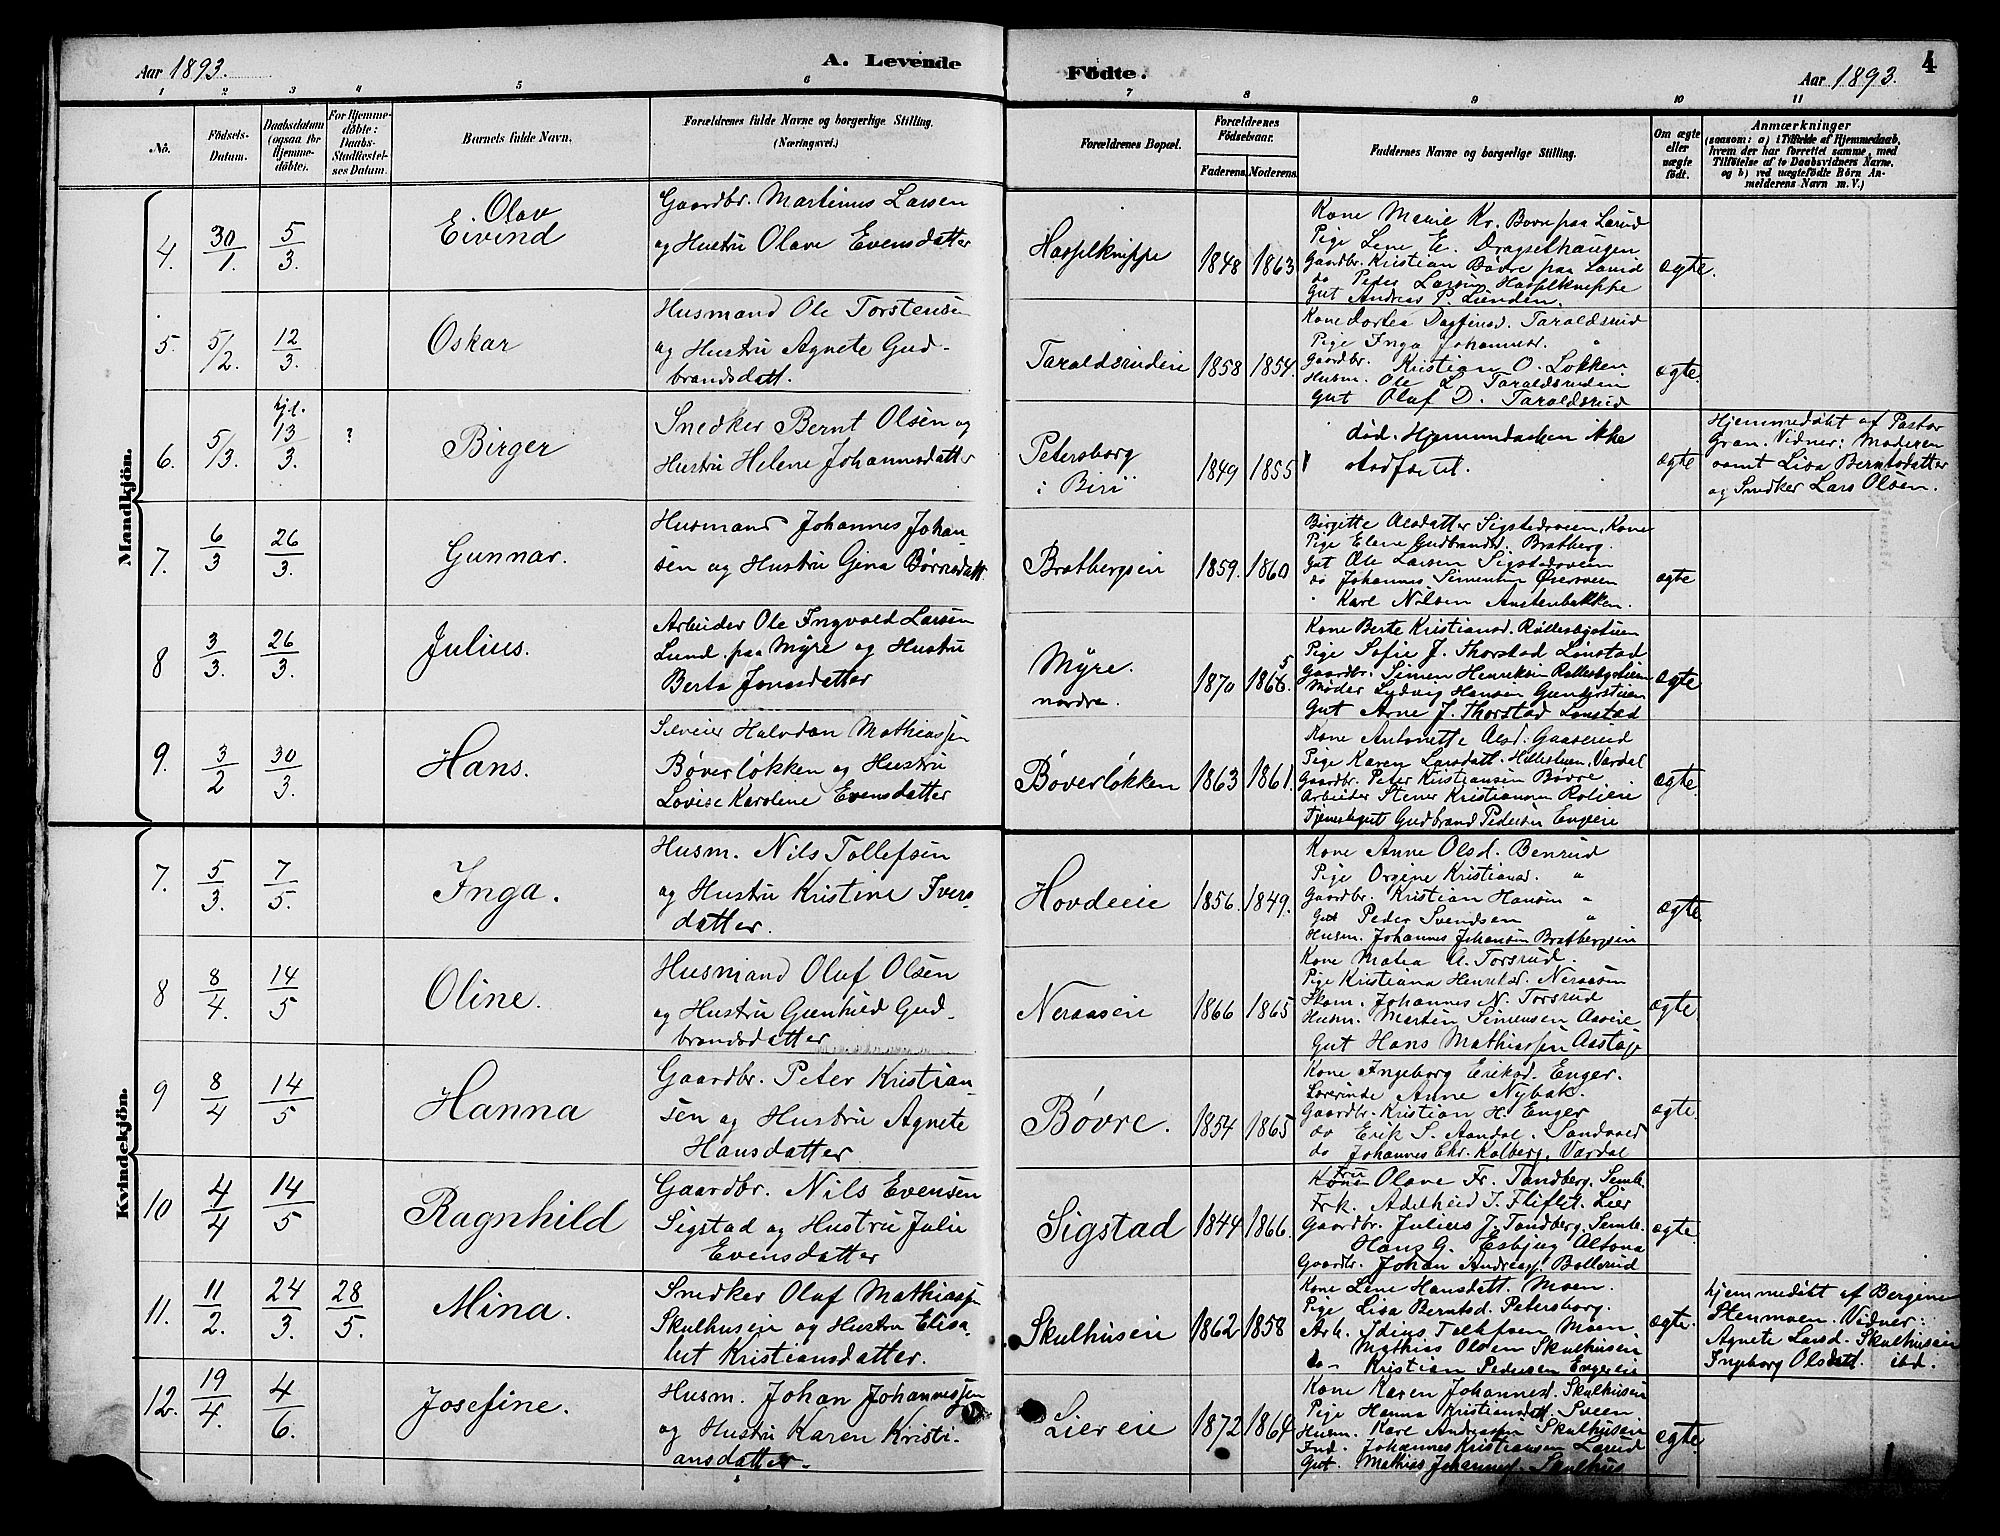 Aar 1893.
A. Levende
Fødte.
Aar 1893.
4
1 2 3 4 5 6 7 8 9 10 11
No.
Fødsels-
Datum.
Daabsdatum
(ogsaa for
Hjemme-
døbte).
For Hjemme-
døbte:
Daabs-
Stadfæstel-
ses Datum.
Barnets fulde Navn.
Forældrenes fulde Navne og borgerlige Stilling.
(Næringsvei.)
Forældrenes Bopæl.
Forældrenes
Fødselsaar.
Faderens. Moderens.
Faddernes Navne og borgerlige Stilling.
Om ægte
eller
uægte
født.
Anmærkninger
(saasom: a) i Tilfælde af Hjemmedaab,
hvem der har forrettet samme, med
Tilføielse af to Daabsvidners Navne,
og b) ved uægtefødte Børn An-
melderens Navn m. V.)
Mandkjön.
4. 30/1. 5/3.
Olav
Eivind
Gaardbr. Martinus Larsen
og Hustru Olave Evensdatter
Hasselknippe
1848 1863
Kone Marie Kr. Bøvre paa Laurd
Pige Lene E. Dragsethaugen
Gaardbr. Kristian Bøvre paa Laurd
do Peder Larsen Hasselknippe
Gut Andreas P. Linden.
ægte.
5. 5/2. 12/3.
Oskar
Husmand Ole Torstensen
og Hustru Agnete Gud-
brandsdatt.
Taraldsrudeie
1858 1854.
Kone Dortea Dagfinsd. Taraldsrud
Pige Inga Johannesd. "
Gaardbr. Kristian O. Løkken
Husm. Ole L. Taraldsrudeie
Gut Olaf D. Taraldsrud
ægte.
6. 5/3. hjd. 13/3. ?
Birger
Snedker Bernt Olsen og
Hustru Helene Johannesdatter
Petersborg
i Biri
1849 1855
død. Hjemmedaaben ikke
stadfæstet.
ægte
Hjemmedøbt af Pastor
Gran. Vidner: Moderen
samt Lisa Berntsdatter
og Snedker Lars Olsen.
7. 6/3 26/3.
Gunnar.
Husmand Johannes Johan-
sen og Hustru Gina Børresdatt.
Bratbergseie
1859. 1860
Birgitte Olsdatter Sigstadsveen, Kone
Pige Elene Gudbrandsd. Bratberg.
Gut Ole Larsen Sigstadsveen
do Johannes Simensen
" Karl Nilsen Austenbakken.
ægte
8 3/3. 26/3.
Julius.
Arbeider Ole Ingvald Larsen
Lund paa Myre og Hustru
Berta Jonasdatter
Myre.
nordre.
1870 1866. 5
Kone Berte Kristiansd. Røllesbystuen
Pige Sofie J. Thorstad Lonstad
Gaardbr. Simen Henriksen Røllesbystuen
Møder Lydvig Hansen
Gut Arne J. Thorstad Lonstad
ægte
9. 3/2 30/3.
Hans.
Sveiser Halvdan Mathiassen
Bøverløkken og Hustru
Lovise Karolene Evensdatter
Bøverløkken
1863 1861.
Kone Antonette Olsd. Gaaserud
Pige Karen Larsdatt. Vardal
Gaardbr. Peter Kristiansen Bøvre
Arbeider Stener Kristiansen
Tjenestegut Gudbrand Pedersen Engeie
ægte.
Kvindekjön.
7. 5/3. 7/5.
Inga.
Husm. Nils Tollefsen
og Hustru Kristine Ivers-
datter.
Hovdeeie
1856. 1849.
Kone Anne Olsd. Benrud
Pige Orgine Kristiansd. "
Gaardbr. Kristian Hansen "
Gut Peder Svendsen "
Husm. Johannes Johansen Bratbergseie
ægte
8 8/4. 14/5
Oline.
Husmand Oluf Olsen
og Hustru Gunhild Gud-
brandsdatter
Neraaseie
1866 1865
Kone Matea A. Torsrud.
Pige Kristiana Henriksd. Neraasen
Skom. Johannes N. Torsrud
Husm. Martin Simensen Aaseie
Gut Hans Mathiassen
ægte.
9 8/4 14/5
Hanna
Gaardbr. Peter Kristian-
sen og Hustru Agnete
Hansdatter
Bøvre.
1854 1865
Kone Ingeborg Eriksd. Enger.
Lærerinde Anne Nybak.
Gaardbr. Kristian H. Enger
do Erik S. Aandal.
do Johannes Chr. Kalberg, Vardal
ægte
10 4/4 14/5
Ragnhild
Gaardbr. Nils Evensen
Sigstad og Hustru Julie
Evensdatter
Sigstad
1844 1866.
Kone Fru Olave Fr. Tandberg, Semb.
Frk. Adelheid T. Fliflet. Lier
Gaardbr. Julius J. Tandberg, Semb.
Hans G. Esbjug Altona
Gaardbr. Johan Andreas Bollerud
ægte
11. 11/2. 24/3. 28/5.
Mina.
Snedker Oluf Mathiassen
Skulhuseie og Hustru Elisa-
bet Kristiansdatter.
Skulhuseie
1862 1858
Kone Lene Hansdatt. Moen.
Pige Lisa Berntsd. Petersborg.
Arb. Idius Tollefsen Moen.
Mathias Olsen Skulhuseie
do Kristian Pedersen Engeeie
ægte.
hjemmedøbt af Bergine
Stenmoen. Vidner:
Agnete Larsd. Skulhuseie
Ingeborg Olsdatt. ibd.
12. 19/4. 4/6.
Josefine.
Husm. Johan Johannessen
og Hustru Karen Kristi-
ansdatter.
Liereie
1872 1864
Kone Karen Johannesd. Skulhuseie
Pige Hanna Kristiansdatt. Sveen
Husm. Karl Andreassen Skulhuseie
Ind. Johannes Kristiansen Laurud
Gut. Mathias Johannes. Skulhus
ægte